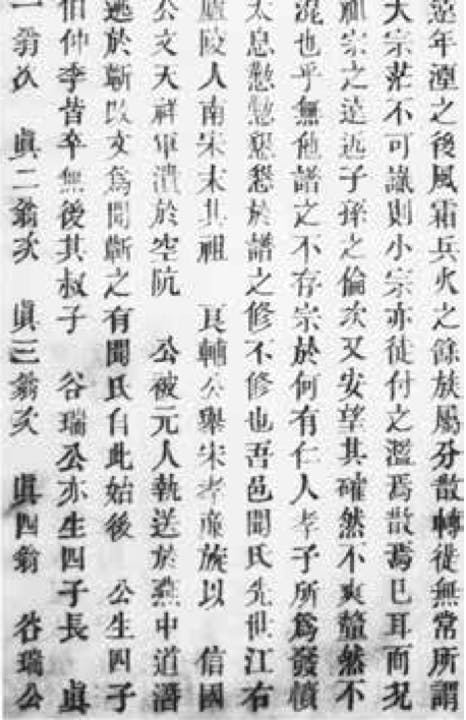 遠年湮之後風霜兵火之餘族屬分散轉徙無常所謂
大宗茫不可識則小宗亦徒付之濫焉散焉已耳而況
祖宗之遠近子孫之倫次又安望其確然不爽釐然不
混也乎無他譜之不存宗於何有仁人孝子所爲發憤
太息慇慇懇懇於譜之修不修也吾邑聞氏先世江右
廬陵人南宋末其祖　良輔公舉宋孝廉族以　信國
公文天祥軍潰於空阬　公被元人執送於燕中道潛
逃於蘄以文爲聞蘄之有聞氏自此始後　公生四子
伯仲季皆卒無後其叔子　谷瑞公亦生四子長　眞
一翁次　眞二翁次　眞三翁次　眞四翁　谷瑞公